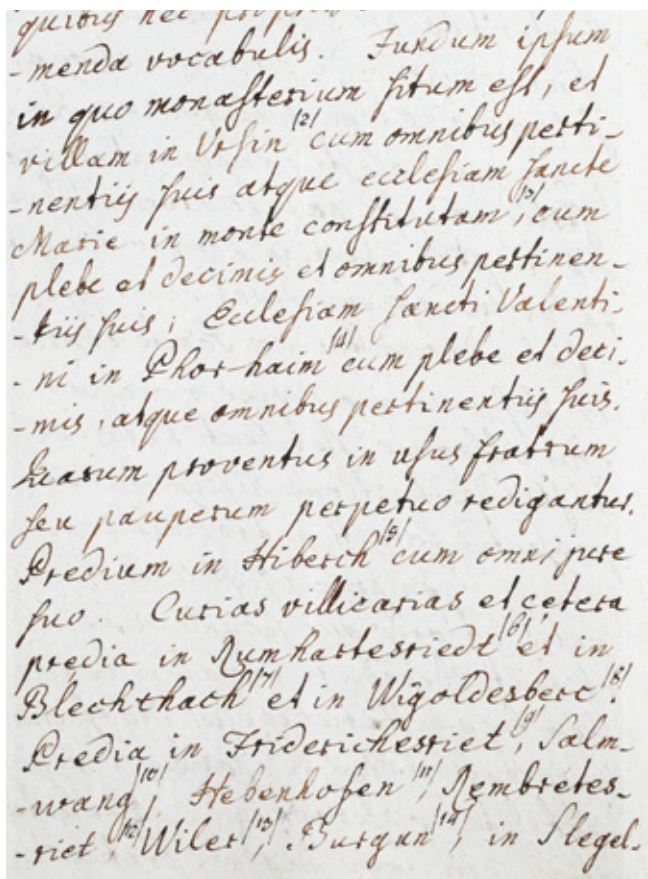 quibus hec propri
-menda vocabulis. Fundum ipsum
in quo monasterium situm est, et
villam in Ursin /2/ cum omnibus perti-
-nentiis suis atque ecclesiam sancte
Marie in monte constitutam /3/, cum
plebe et decimis et omnibus pertinen-
-tiis suis; Ecclesiam sancti Valenti-
-ni in Phor-haim /4/ cum plebe et deci-
-mis, atque omnibus pertinentiis suis.
Quarum proventus in usus fratrum
seu pauperum perpetuo redigantur.
Predium in Hiberch /5/ cum omni jure
suo. Curias villicarias et cetera
predia in Rumhartesriedt /6/ et in
Blechthach /7/ et in Wigoldesberc /8/.
Predia in Friderichesriet /9/, Salm-
-wang /10/, Hebenhofen /11/, Rembretes-
-riet /12/, Wiler /13/, Burgun /14/, in Slegel-